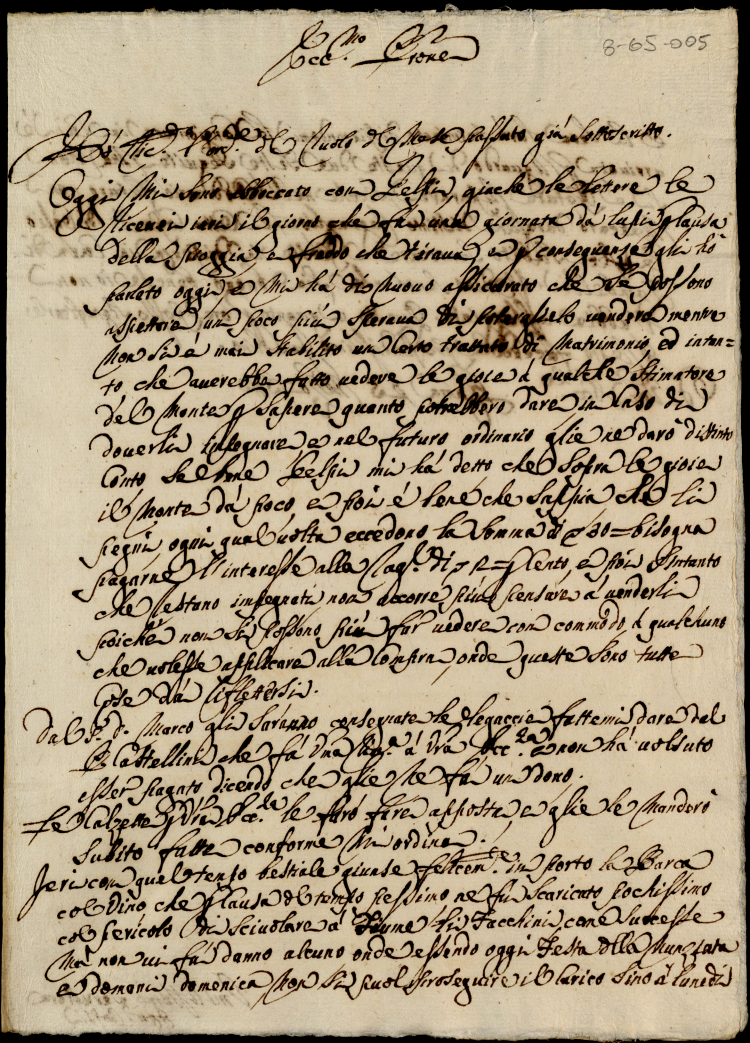 8-65-005
Ecc.mo Prone
Hò ric.to l'ord.e del Ruolo del Mese passato già sottoscritto.
Oggi Mi sono abboccato con Pelsin, giache le lettere le
ricevei ieri il giorno che fù una giornata dà lupi p causa
della pioggia, e freddo che tirava, e p conseguenza gli hò
parlato oggi, e Mi hà di nuovo assicurato che se possono
aspettare un poco più sperava di poterglielo vendere mentre
Non si è mai stabilito un certo trattato di Matrimonio, ed intan=
to che averebbe fatto vedere le gioie à qualche stimatore
del Monte p sapere quanto potrebbero dare in caso di
doverli impegnare, e nel futuro ordinario glie ne darò distinto
Conto se bene Pelsin mi hà detto che sopra le gioie
il Monte dà poco, e poi è bene che sappia che li
pegni, ogni qual volta eccedono la somma di 30= bisogna
pagarne l'interesse alla rag.e di 2= p Cento, e poi intanto
che restano impegnati non accorre più pensare à venderli
poiche non si possono più far vedere con commodo à qualcheduno
che volesse applicare alla compra, onde queste sono tutte
cose dà riflettersi.
Dal P. D. Marco gli saranno consegnate le legaccie fattemi dare dal
Castellini che fà Una riv.a à Vra Ecc.za e non hà volsuto
esser pagato dicendo che glie ne fà un dono.
Le Calzette p Vra Ecc.za le farò fare apposta, e glie le Manderò
subito fatte conforme Mi ordina.
Jeri con quel tempo bestiale giunse felicem.te in porto la Barca
col Vino che p causa del tempo pessimo ne fù scaricato pochissimo
col pericolo di scivolare à fiume li Facchini, come successe
Mà non vi fù danno alcuno onde essendo oggi Festa della Nunziata
e domani domenica Non si può proseguire il carico sino à lunedì